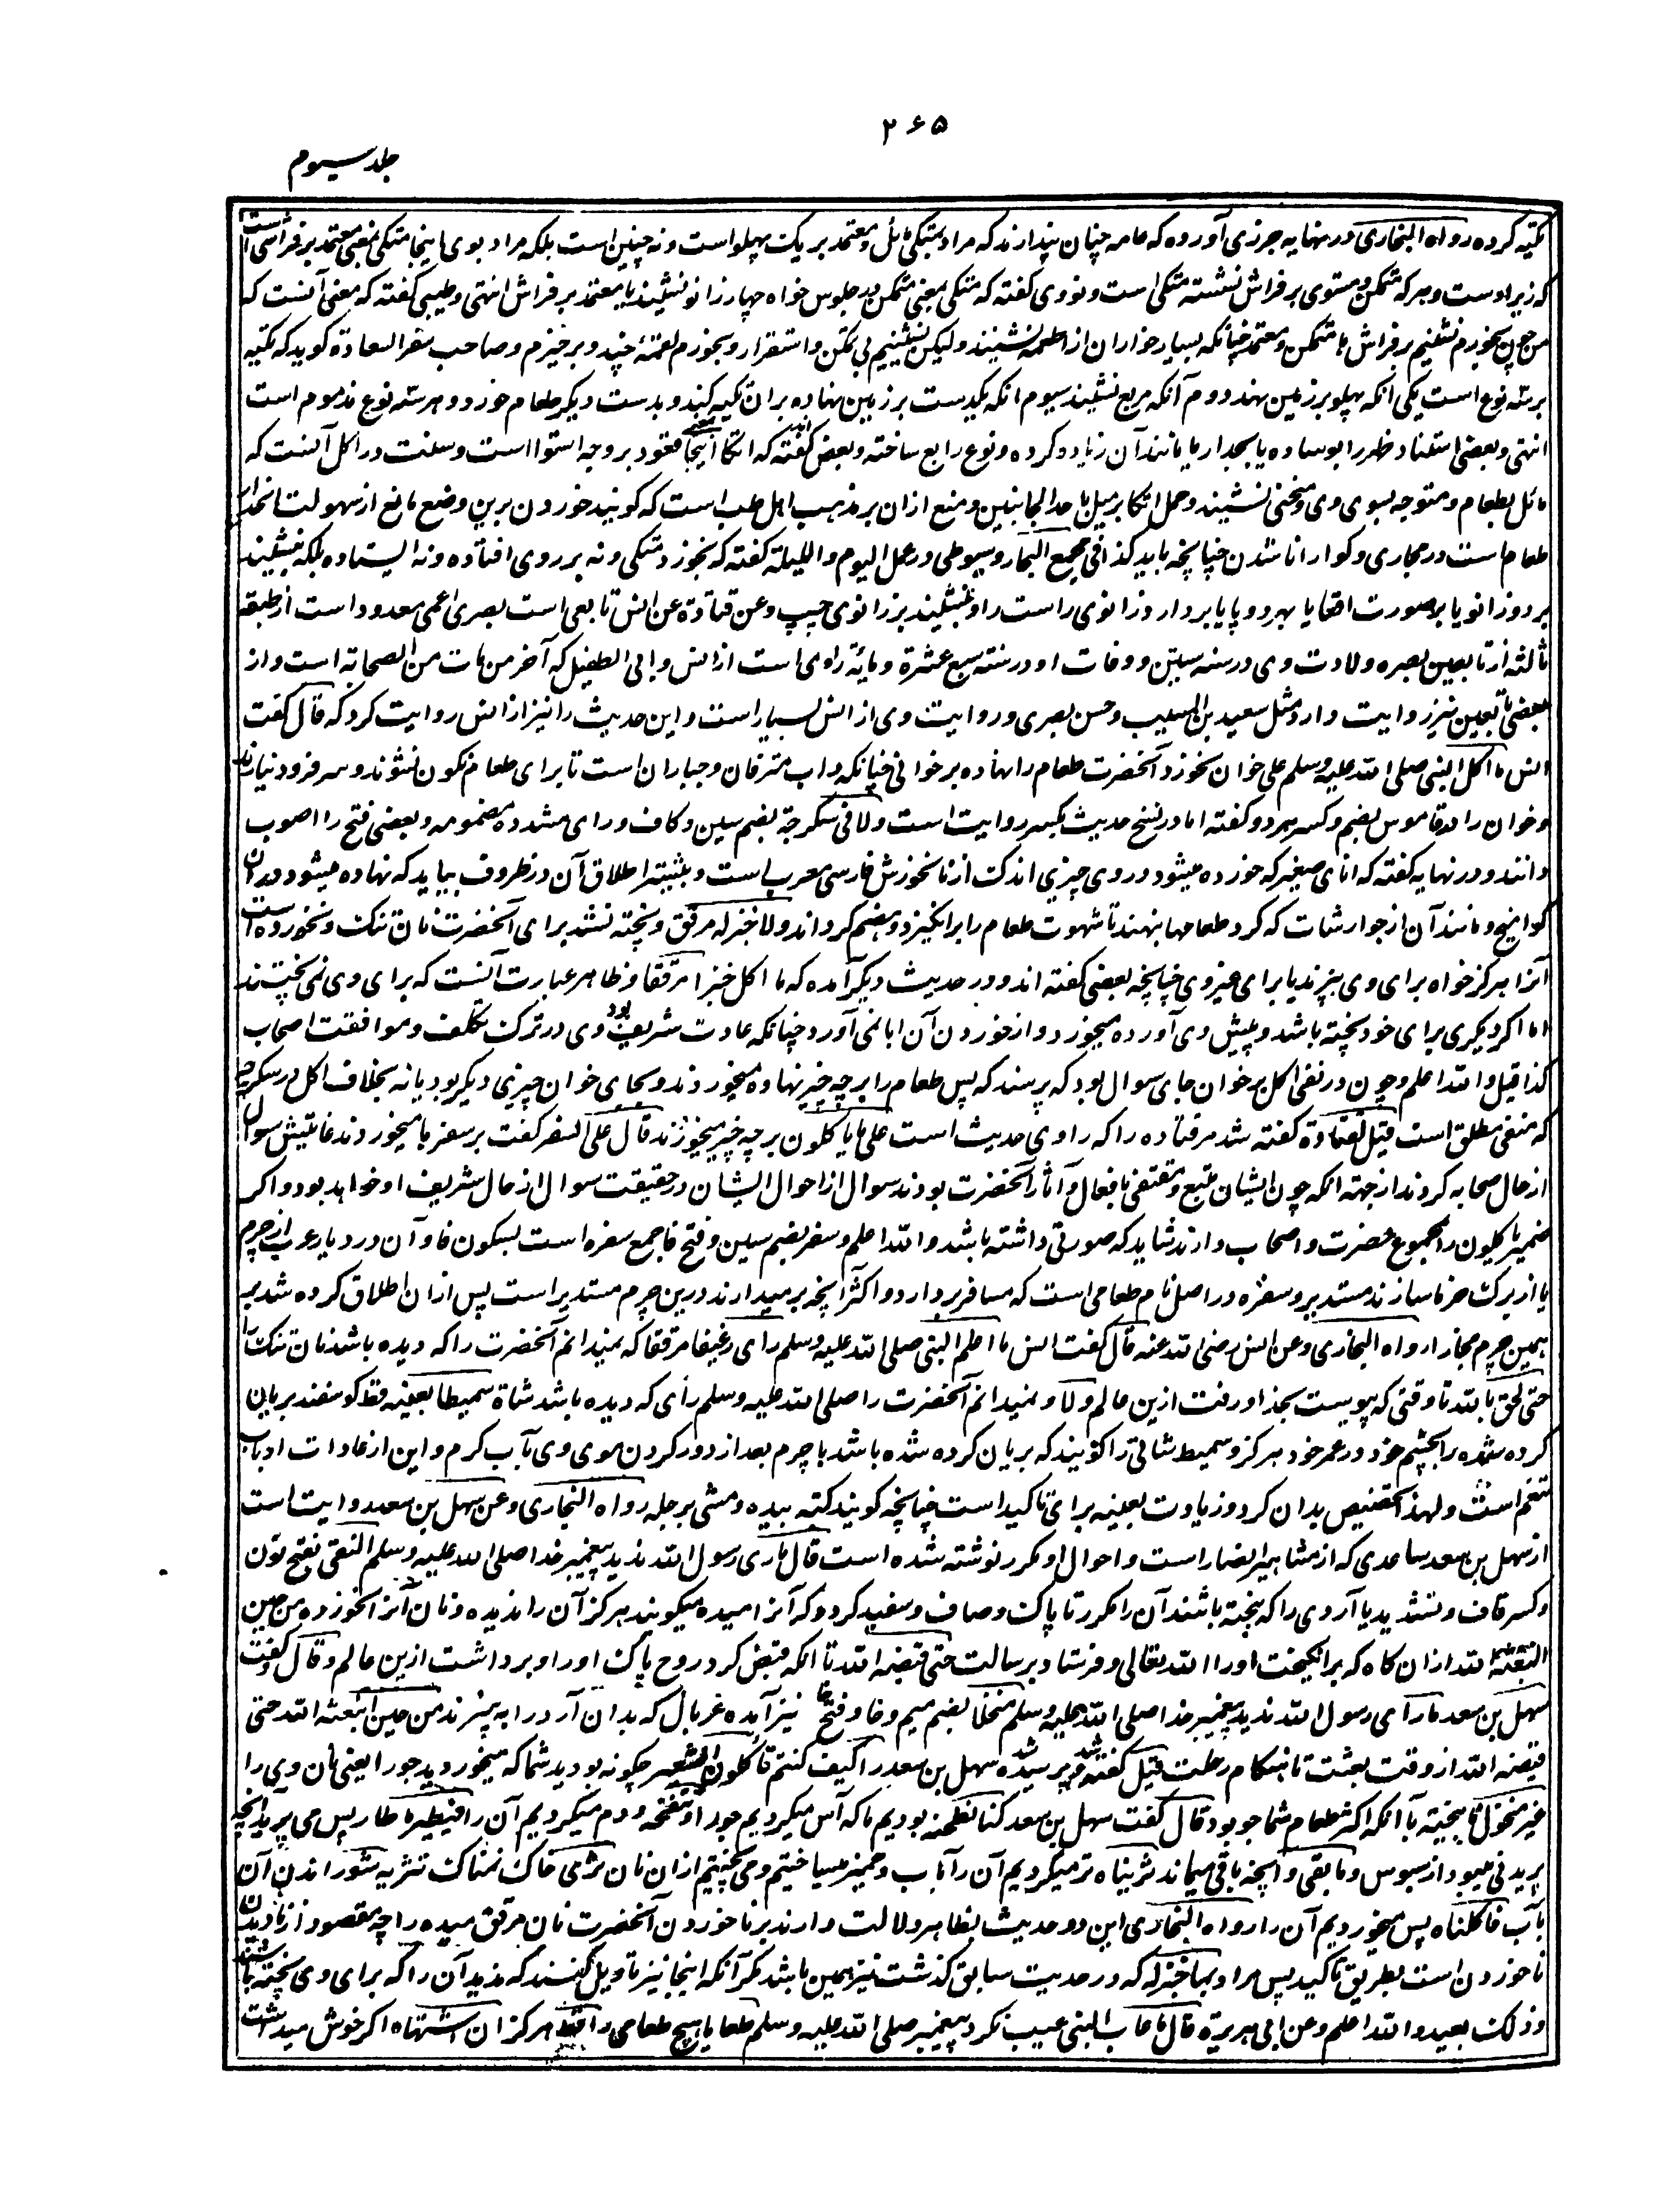 ۲۶۵
جلد سیوم
تکیه کرده رواه البخاری در نهایه جرزی آورده که عامه چنان پندارند که مراد بمتکی مائل و معتمد بر یک پهلو است و نه چنین است بلکه مراد بوی اینجا متکی بمعنی معتمد بر فراشی است
که زیر اوست و هر که متمکن و مستوی بر فراش نشسته متکی است و نووی گفته که متکی بمعنی متمکن در جلوس خواه چهار زانو نشیند یا معتمد بر فراش انتهی و طیبی گفته که معنی آنست که
من چون بخورم نشینم بر فراش با متمکن و معتمد چنانکه بسیار خواران از اطعمه نشینند ولیکن نشینیم بی تمکن و استقرار و بخورم لقمهٔ چند و برخیزم و صاحب سفر السعادة گوید که تکیه
بر سه نوع است یکی انکه پهلو بر زمین نهد دوم آنکه مربع نشیند سیوم انکه یکدست بر زمین نهاده بران تکیه کند و بدست دیگر طعام خورد و هر سه نوع مذموم است
انتهی و بعضی استناد ظهر را بوساده یا بجدار یا مانند آن زیاده کرده و نوع رابع ساخته و بعضی گفته اند که اتکا اینجا بمعنی قعود بر وجه استوا است و سنت در اکل آنست که
مائل بطعام و متوجه بسوی وی و منحنی نشیند و حمل اتکا بر میل باحد الجانبین و منع ازان بر مذهب اهل طب است که گویند خوردن برین وضع مانع از سهولت انحدار
طعام است در مجاری و گوارا ناشدن چنانچه باید کذا فی مجمع البحار و سیوطی در عمل الیوم و اللیلة گفته که نخورد متکی و نه بر روی افتاده و نه ایستاده بلکه بنشیند
بر دو زانو یا بر صورت اقعا یا بهر دو پا یا بردارد زانوی راست را و بنشیند بر زانوی چپ و عن قتادة عن انس تابعی است بصری اعمی معدود است از طبقه
ثالثه از تابعین بصره ولادت وی در سنه ستین و وفات او در سنه سبع عشرة و مائة راوی است از انس و ابی الطفیل که آخر من مات من الصحابة است و از
بعضی تابعین نیز روایت دارد مثل سعید بن المسیب و حسن بصری و روایت وی از انس بسیار است و این حدیث را نیز از انس روایت کرد که قال گفت
انس ما اکل النبی صلی الله علیه وسلم علی خوان نخورد آنحضرت طعام را نهاده بر خوانی چنانکه داب مترفان و جباران است تا برای طعام نگون نشوند و سر فرود نیارند
و خوان را در قاموس بضم و کسر هر دو گفته اما در نسخ حدیث بکسر روایت است ولا فی سکرجة بضم سین و کاف و رای مشدده مضمومه و بعضی فتح را اصوب
دانند و در نهایه گفته که انای صغیر که خورده میشود در وی چیزی اندک از نانخورش فارسی معرب است و بیشتر اطلاق آن در ظروف بیاید که نهاده میشود دران
گوامیخ و مانند آن از جوارشات که گرد طعامها بنهند تا شهوت طعام را برانگیزد و هضم گرداند ولا خبز له مرقق و پخته نشد برای آنحضرت نان تنک و نخورده است
آنرا هرگز خواه برای وی بپزند یا برای غیر وی چنانچه بعضی گفته اند و در حدیث دیگر آمده که ما اکل خبزا مرققا و ظاهر عبارت آنست که برای وی نمی پختند
اما اگر دیگری برای خود پخته باشد و پیش وی آورده میخورد و از خوردن آن ابا نمی آورد چنانکه عادت شریف بود وی در ترک تکلف و موافقت اصحاب
کذا قیل والله اعلم و چون در نفی اکل بر خوان جای سوال بود که پرسند که پس طعام را بر چه چیز نهاده میخوردند و بجای خوان چیزی دیگر بود یا نه بخلاف اکل در سکرجه
که منفی مطلق است قیل لقتادة گفته شد مر قتاده را که راوی حدیث است علی ما یاکلون بر چه چیز میخوردند قال علی السفر گفت بر سفرها میخوردند غایتش سوال
از حال صحابه کردند از جهت انکه چون ایشان متبع و مقتفی بافعال و آثار آنحضرت بودند سوال از احوال ایشان در حقیقت سوال از حال شریف او خواهد بود و اگر
ضمیر یاکلون را بمجموع حضرت و اصحاب دارند شاید که صورتی داشته باشد والله اعلم و سفر بضم سین و فتح فا جمع سفره است بسکون فا و آن در دیار عرب از چرم
یا از برگ خرما سازند مستدیر و سفره در اصل نام طعامی است که مسافر بردارد و اکثر انچه بر میدارند درین چرم مستدیر است پس ازان اطلاق کرده شد بر
همین چرم مجازا رواه البخاری و عن انس رضی الله عنه قال گفت انس ما اعلم النبی صلی الله علیه وسلم رای رغیفا مرققا که نمیدانم آنحضرت را که دیده باشد نان تنک را
حتی لحق بالله تا وقتی که پیوست بخدا و رفت ازین عالم ولا و نمیدانم آنحضرت را صلی الله علیه وسلم رأی که دیده باشد شاة سمیطا بعینه قط گوسفند بریان
کرده شده را بچشم خود در عمر خود هرگز و سمیط شاتی را گویند که بریان کرده شده باشد با چرم بعد از دور کردن موی وی بآب گرم و این از عادات ارباب
تنعم است و لهذا تخصیص بدان کرد و زیادت بعینه برای تاکید است چنانچه گویند کتبه بیده و مشی برجله رواه البخاری و عن سهل بن سعد روایت است
از سهل بن سعد ساعدی که از مشاهیر انصار است و احوال او مکرر نوشته شده است قال ما رای رسول الله ندید پیغمبر خدا صلی الله علیه وسلم النقی بفتح نون
و کسر قاف و تشدید یا آردی را که بیخته باشند آن را مکرر تا پاک و صاف و سفید گردد که آنرا میده میگویند هرگز آن را ندیده و نان آنرا نخورده من حین
ابتعثه الله ازان گاه که برانگیخت او را الله تعالی و فرستاد برسالت حتی قبضه الله تا انکه قبض کرد روح پاک او را و برداشت ازین عالم و قال و گفت
سهل بن سعد ما رآی رسول الله ندید پیغمبر خدا صلی الله علیه وسلم منخلا بضم میم و خا و فتح خا نیز آمده غربال که بدان آرد را به بیزند من حین ابتعثه الله حتی
قبضه الله از وقت بعثت تا بهنگام رحلت قیل گفته شد و پرسیده شد سهل بن سعد را کیف کنتم تأکلون الشعیر چگونه بودید شما که میخوردید جو را یعنی نان وی را
غیر منخول نا بیخته با آنکه اکثر طعام شما جو بود قال گفت سهل بن سعد کنا نطحنه بودیم ما که آس میکردیم جو را و ننفخه و دم میکردیم آن را فیطیر ما طار پس می پرید آنچه
پرید نی میبود از سبوس و ما بقی و آنچه باقی میماند ثریناه تر میکردیم آن را بآب و خمیر میساختیم و می پختیم ازان نان ثری خاک نمناک تثریه شوراندن آن
بآب فاکلناه پس میخوردیم آن را رواه البخاری این دو حدیث بظاهر دلالت دارند بر ناخوردن آنحضرت نان مرقق میده را چه مقصود از نادیدن
ناخوردن است بطریق تاکید پس مراد بما خبز له که در حدیث سابق گذشت نیز همین باشد مگر آنکه اینجا نیز تاویل کنند که ندید آن را که برای وی پخته باشند
وذلک بعید والله اعلم و عن ابی هریرة قال ما عاب النبی عیب نکرد پیغمبر صلی الله علیه وسلم طعاما هیچ طعامی را قط هرگز ان اشتهاه اگر خوش میداشت